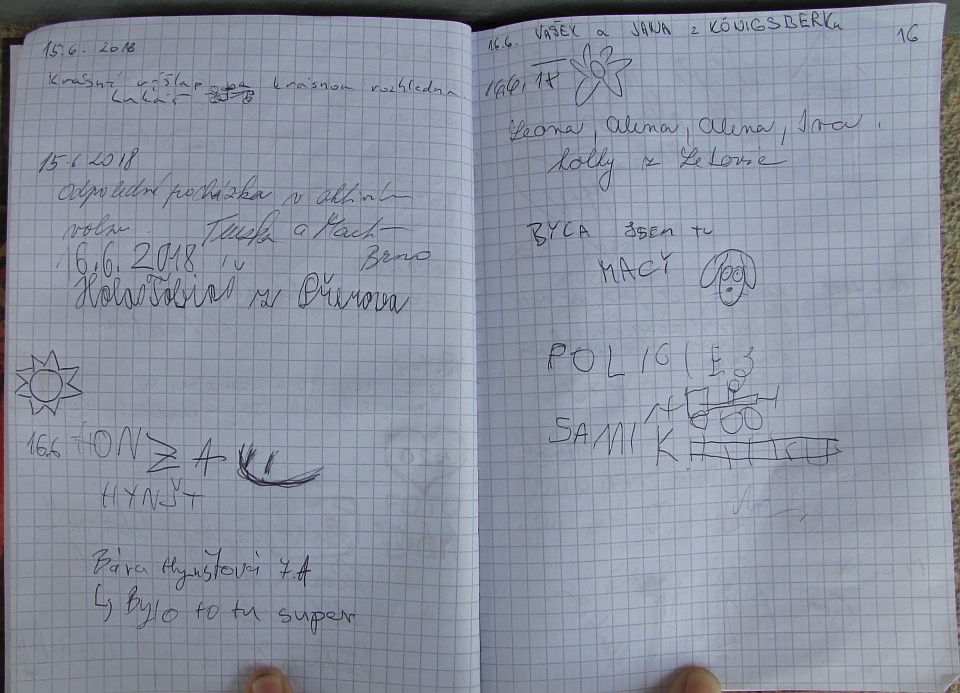 15.6. 2018
Krásný výšlap na krásnou rozhlednu
15.6 2018
Odpolední pocházka v aktivním
volnu. Terezka a Mach
Brno
16.6. 2018
Holas Tobiáš z Přerova
16.6 HONZA
HYNŠT
Bára Hynštová 7.A
↳ Bylo to tu super
16.6. VAŠEK a JANA z KÖNIGSBERKu
16
16.6. 18
Leona, Alena, Alena, Iva,
Kolly z Letovic
BYCA JSEM tu
MACY
POLIGIE
SAMIK